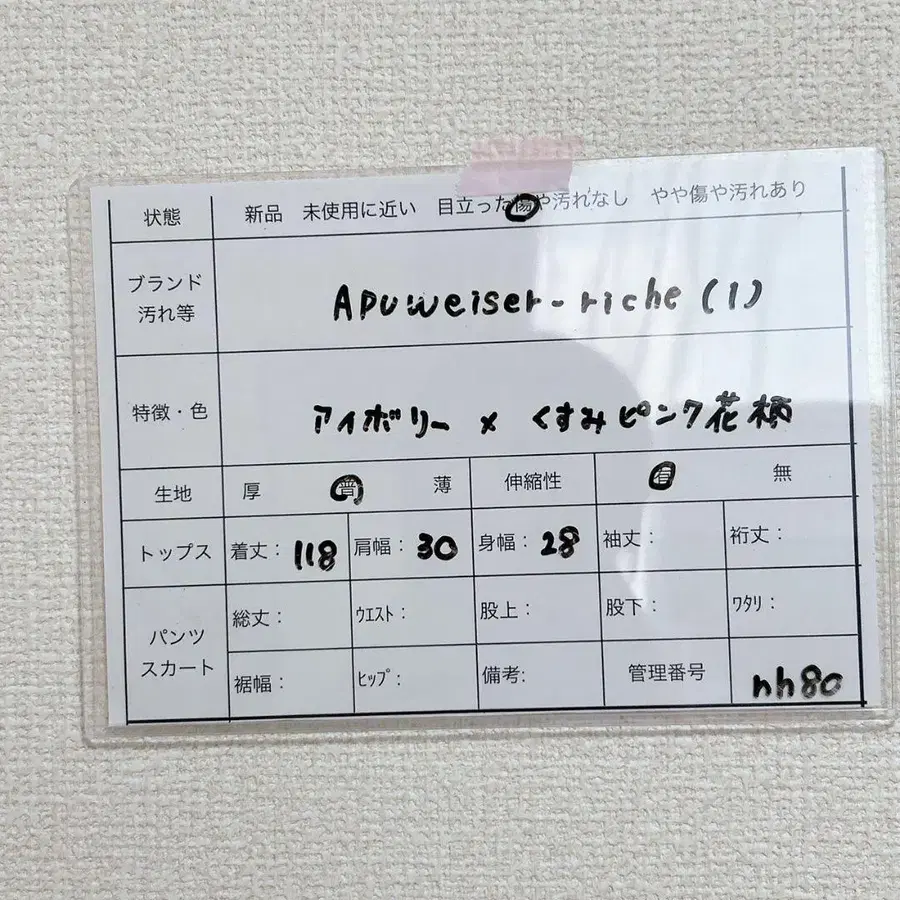 状態 新品 未使用に近い 目立った傷や汚れなし やや傷や汚れあり
ブランド
汚れ等
Apuweiser-riche (1)
特徴・色 アイボリー × くすみピンク花柄
生地 厚 普 薄 伸縮性 有 無
トップス 着丈: 118 肩幅: 30 身幅: 28 袖丈: 裄丈:
パンツ
スカート
総丈: ウエスト: 股上: 股下: ワタリ:
裾幅: ヒップ: 備考: 管理番号 nh80